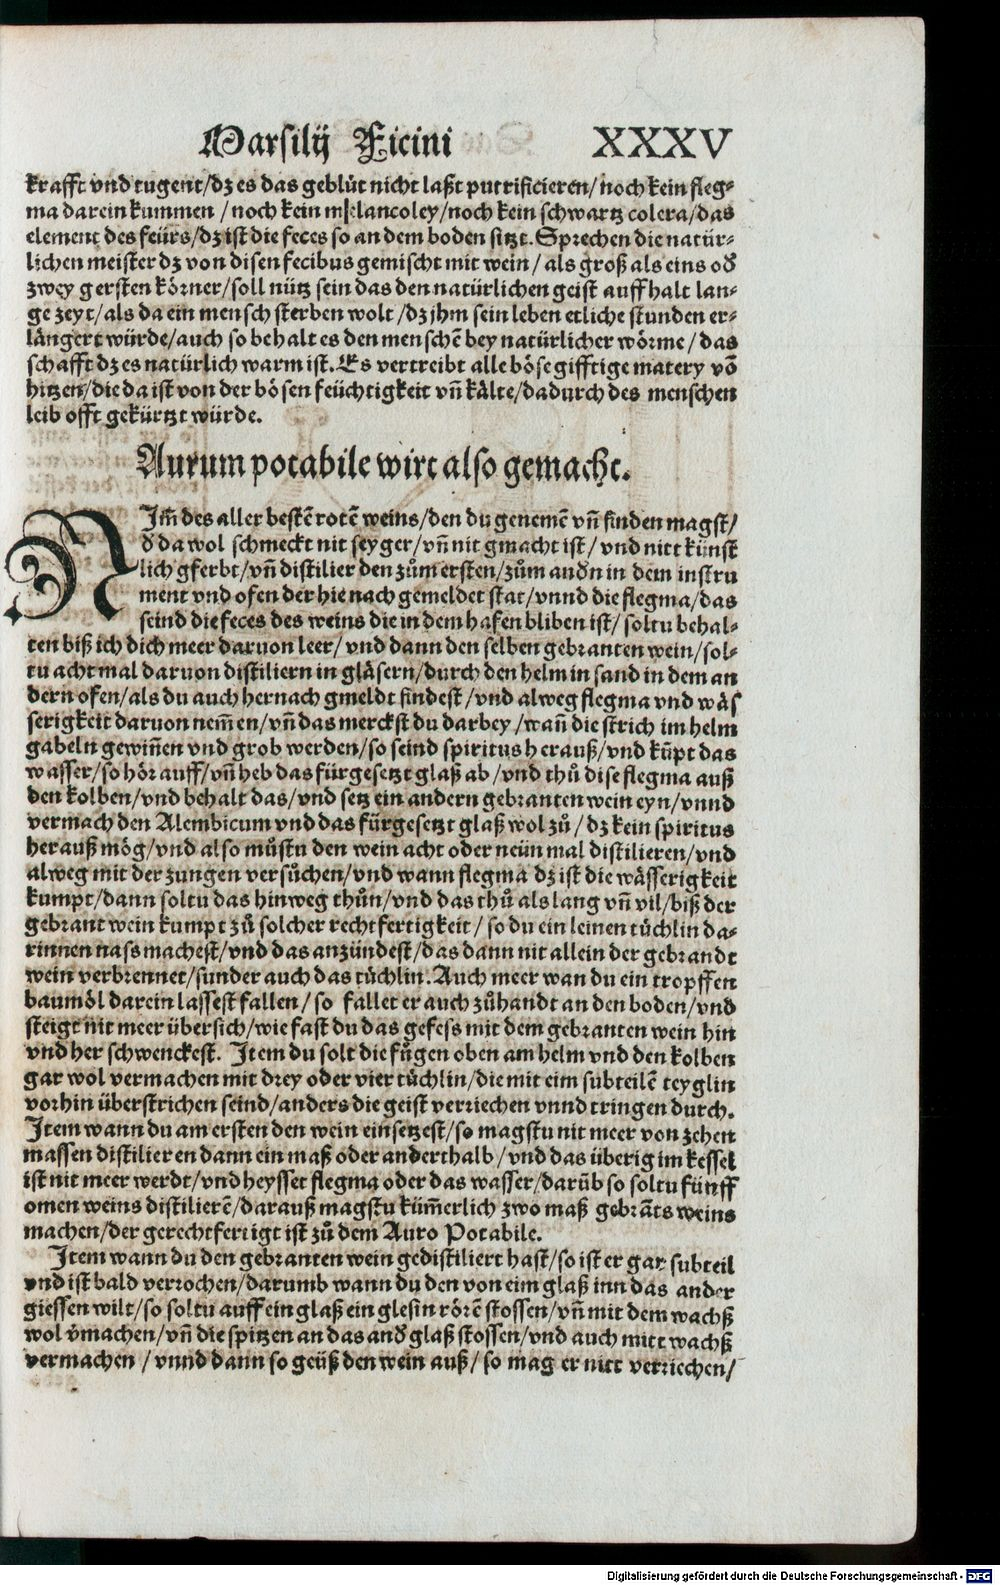 Marsilij Ficini XXXV
krafft vnd tugent/dz es das geblůt nicht laßt putrificieren/noch kein fleg-
ma darein kummen /noch kein melancoley/noch kein schwartz colera/das
element des feürs/dz ist die feces so an dem boden sitzt. Sprechen die natür-
lichen meister dz von disen fecibus gemischt mit wein/als groß als eins oď
zwey gersten körner/soll nütz sein das den natürlichen geist auff halt lan-
ge zeyt/als da ein mensch sterben wolt/dz jhm sein leben etliche stunden er-
längert würde/auch so behalt es den menschē bey natürlicher wörme/das
schafft dz es natürlich warm ist. Es vertreibt alle böse gifftige matery vō
hitzen/die da ist von der bösen feüchtigkeit vñ kälte/dadurch des menschen
leib offt gekürtzt würde.
Aurum potabile wirt also gemacht.
NIm̄ des aller bestē rotē weins/den du genemē vñ finden magst/
ď da wol schmeckt nit seyger/vñ nit gmacht ist/vnd nitt künst
lich gferbt/vñ distilier den zům ersten/zům anďn in dem instru
ment vnd ofen der hie nach gemeldet stat/vnnd die flegma/das
seind die feces des weins die in dem hafen bliben ist/soltu behal-
ten biß ich dich meer daruon leer/vnd dann den selben gebranten wein/sol-
tu acht mal daruon distiliern in gläsern/durch den helm in sand in dem an
dern ofen/als du auch hernach gmeldt findest/vnd alweg flegma vnd wäs
serigkeit daruon nem̄en/vñ das merckst du darbey/wañ die strich im helm
gabeln gewiñen vnd grob werden/so seind spiritus herauß/vnd kūpt das
wasser/so hör auff/vñ heb das fürgesetzt glaß ab/vnd thů dise flegma auß
den kolben/vnd behalt das/vnd setz ein andern gebranten wein eyn/vnnd
vermach den Alembicum vnd das fürgesetzt glaß wol zů/dz kein spiritus
herauß mög/vnd also můstu den wein acht oder neün mal distilieren/vnd
alweg mit der zungen versůchen/vnd wann flegma dz ist die wässerigkeit
kumpt/dann soltu das hinweg thůn/vnd das thů als lang vñ vil/biß der
gebrant wein kumpt zů solcher rechtfertigkeit/so du ein leinen tüchlin da-
rinnen nass machest/vnd das anzündest/das dann nit allein der gebrandt
wein verbrennet/sunder auch das tüchlin. Auch meer wan du ein tropffen
baumöl darein lassest fallen/so fallet er auch zůhandt an den boden/vnd
steigt nit meer übersich/wie fast du das gefess mit dem gebranten wein hin
vnd her schwenckest. Item du solt die fůgen oben am helm vnd den kolben
gar wol vermachen mit drey oder vier tüchlin/die mit eim subteilē teyglin
vorhin überstrichen seind/anders die geist verriechen vnnd tringen durch.
Item wann du am ersten den wein einsetzest/so magstu nit meer von zehen
massen distilieren dann ein maß oder anderthalb/vnd das überig im kessel
ist nit meer werdt/vnd heysset flegma oder das wasser/darūb so soltu fünff
omen weins distilierē/darauß magstu küm̄erlich zwo maß gebrāts weins
machen/der gerechtfertigt ist zů dem Auro Potabile.
Item wann du den gebranten wein gedistiliert hast/so ist er gar subteil
vnd ist bald verrochen/darumb wann du den von eim glaß inn das ander
giessen wilt/so soltu auff ein glaß ein glesin rörē stossen/vñ mit dem wachß
wol v̄machen/vñ die spitzen an das anď glaß stossen/vnd auch mitt wachß
vermachen /vnnd dann so geüß den wein auß/so mag er nitt verriechen/
Digitalisierung gefördert durch die Deutsche Forschungsgemeinschaft - DFG